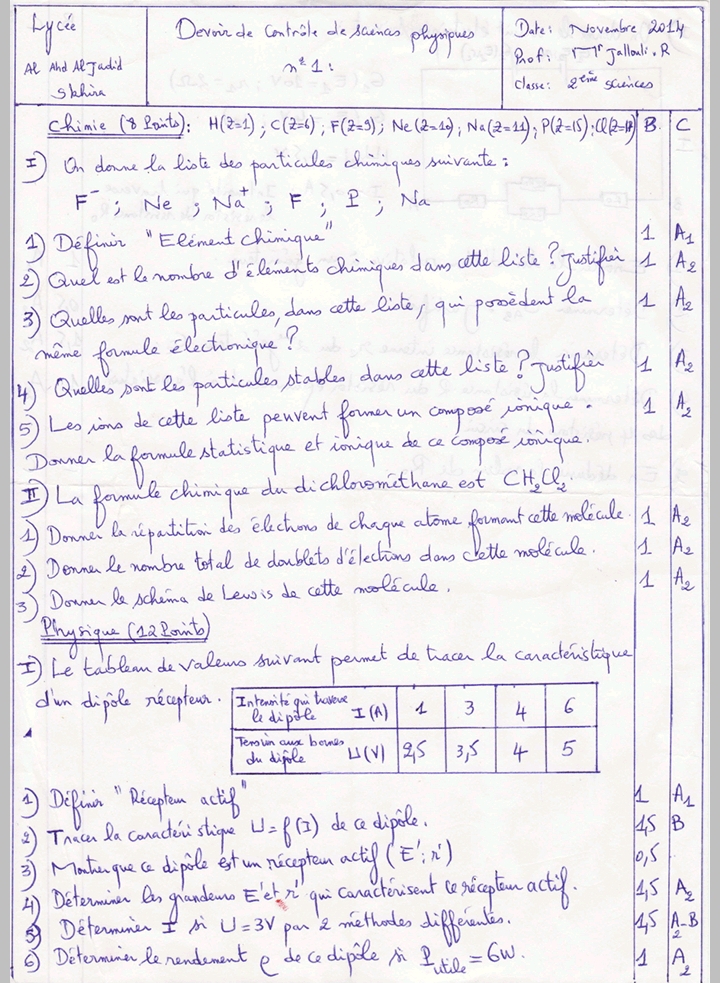 Lycée
Al Ahd Al Jadid
Skhira
Devoir de Contrôle de sciences physiques
n° 1 :
Date : Novembre 2014
Prof : Mr Jallouli . R
Classe : 2ème sciences
Chimie (8 Points) : H(Z=1) ; C(Z=6) ; F(Z=9) ; Ne(Z=10) ; Na(Z=11) ; P(Z=15) ; Cl(Z=17) B. C
I) On donne la liste des particules chimiques suivante :
F⁻ ; Ne ; Na⁺ ; F ; P ; Na
1) Définir "Elément chimique" 1 A₁
2) Quel est le nombre d'éléments chimiques dans cette liste ? Justifier 1 A₂
3) Quelles sont les particules, dans cette liste, qui possèdent la 1 A₂
même formule électronique ?
4) Quelles sont les particules stables dans cette liste ? Justifier 1 A₂
5) Les ions de cette liste peuvent former un composé ionique. 1 A₂
Donner la formule statistique et ionique de ce composé ionique.
II) La formule chimique du dichlorométhane est CH₂Cl₂.
1) Donner la répartition des électrons de chaque atome formant cette molécule. 1 A₂
2) Donner le nombre total de doublets d'électrons dans cette molécule. 1 A₂
3) Donner le schéma de Lewis de cette molécule. 1 A₂
Physique (12 Points)
I) Le tableau de valeurs suivant permet de tracer la caractéristique
d'un dipôle récepteur.
Intensité qui traverse
le dipôle I(A) 1 3 4 6
Tension aux bornes
du dipôle U(V) 2,5 3,5 4 5
1) Définir "Récepteur actif" 1 A₁
2) Tracer la caractéristique U = f(I) de ce dipôle. 1,5 B
3) Montrer que ce dipôle est un récepteur actif (E' ; r') 0,5
4) Déterminer les grandeurs E' et r' qui caractérisent ce récepteur actif. 1,5 A₂
5) Déterminer I si U = 3V par 2 méthodes différentes. 1,5 A₂-B
6) Déterminer le rendement ρ de ce dipôle si P utile = 6W. 1 A₂